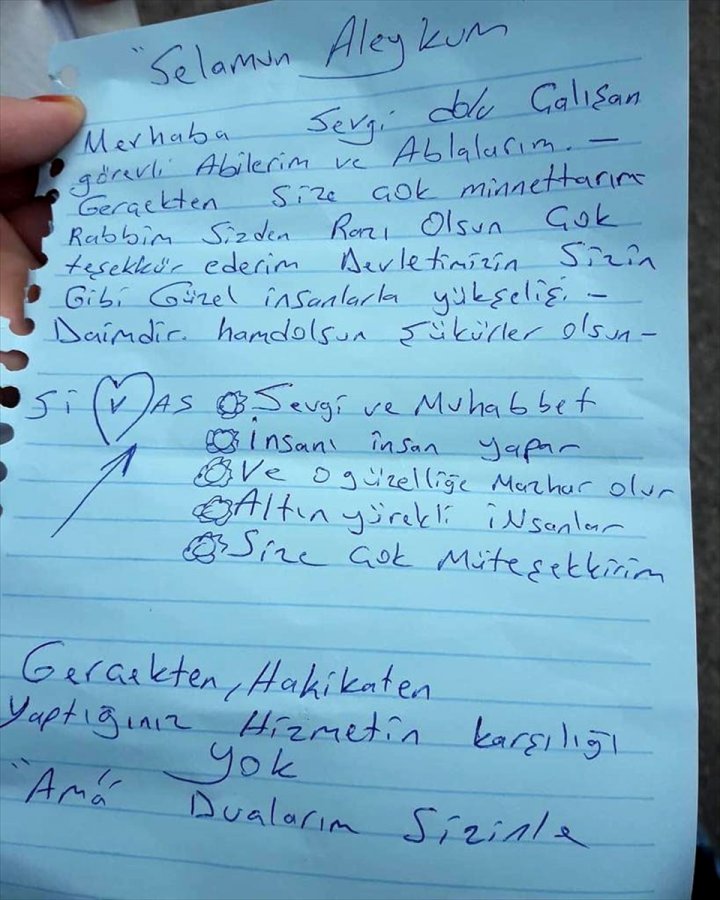 "Selamun Aleykum
Merhaba Sevgi dolu Çalışan
görevli Abilerim ve Ablalarım. —
Gerçekten size çok minnettarım
Rabbim Sizden Razı Olsun Çok
teşekkür ederim Devletimizin Sizin
Gibi Güzel insanlarla yükselişi. –
Daimdir. hamdolsun şükürler olsun–
Si V AS Sevgi ve Muhabbet
İnsanı insan yapar
Ve o güzelliğe Mazhar olur
Altın yürekli iNsanlar
Size Çok Müteşekkirim
Gerçekten, Hakikaten
Yaptığınız Hizmetin karşılığı
yok
"Ama" Dualarım Sizinle